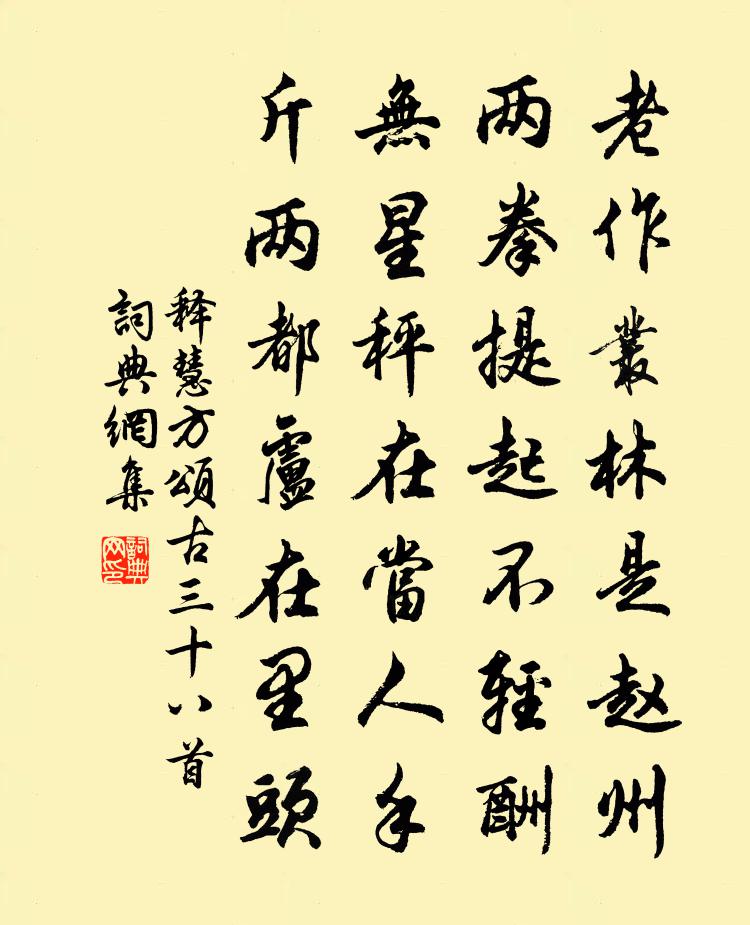 老作叢林是赵州
两拳提起不輕酬
無星秤在當人手
斤两都盧在里頭
释慧方頌古三十八首
詞典網集
詞典網印